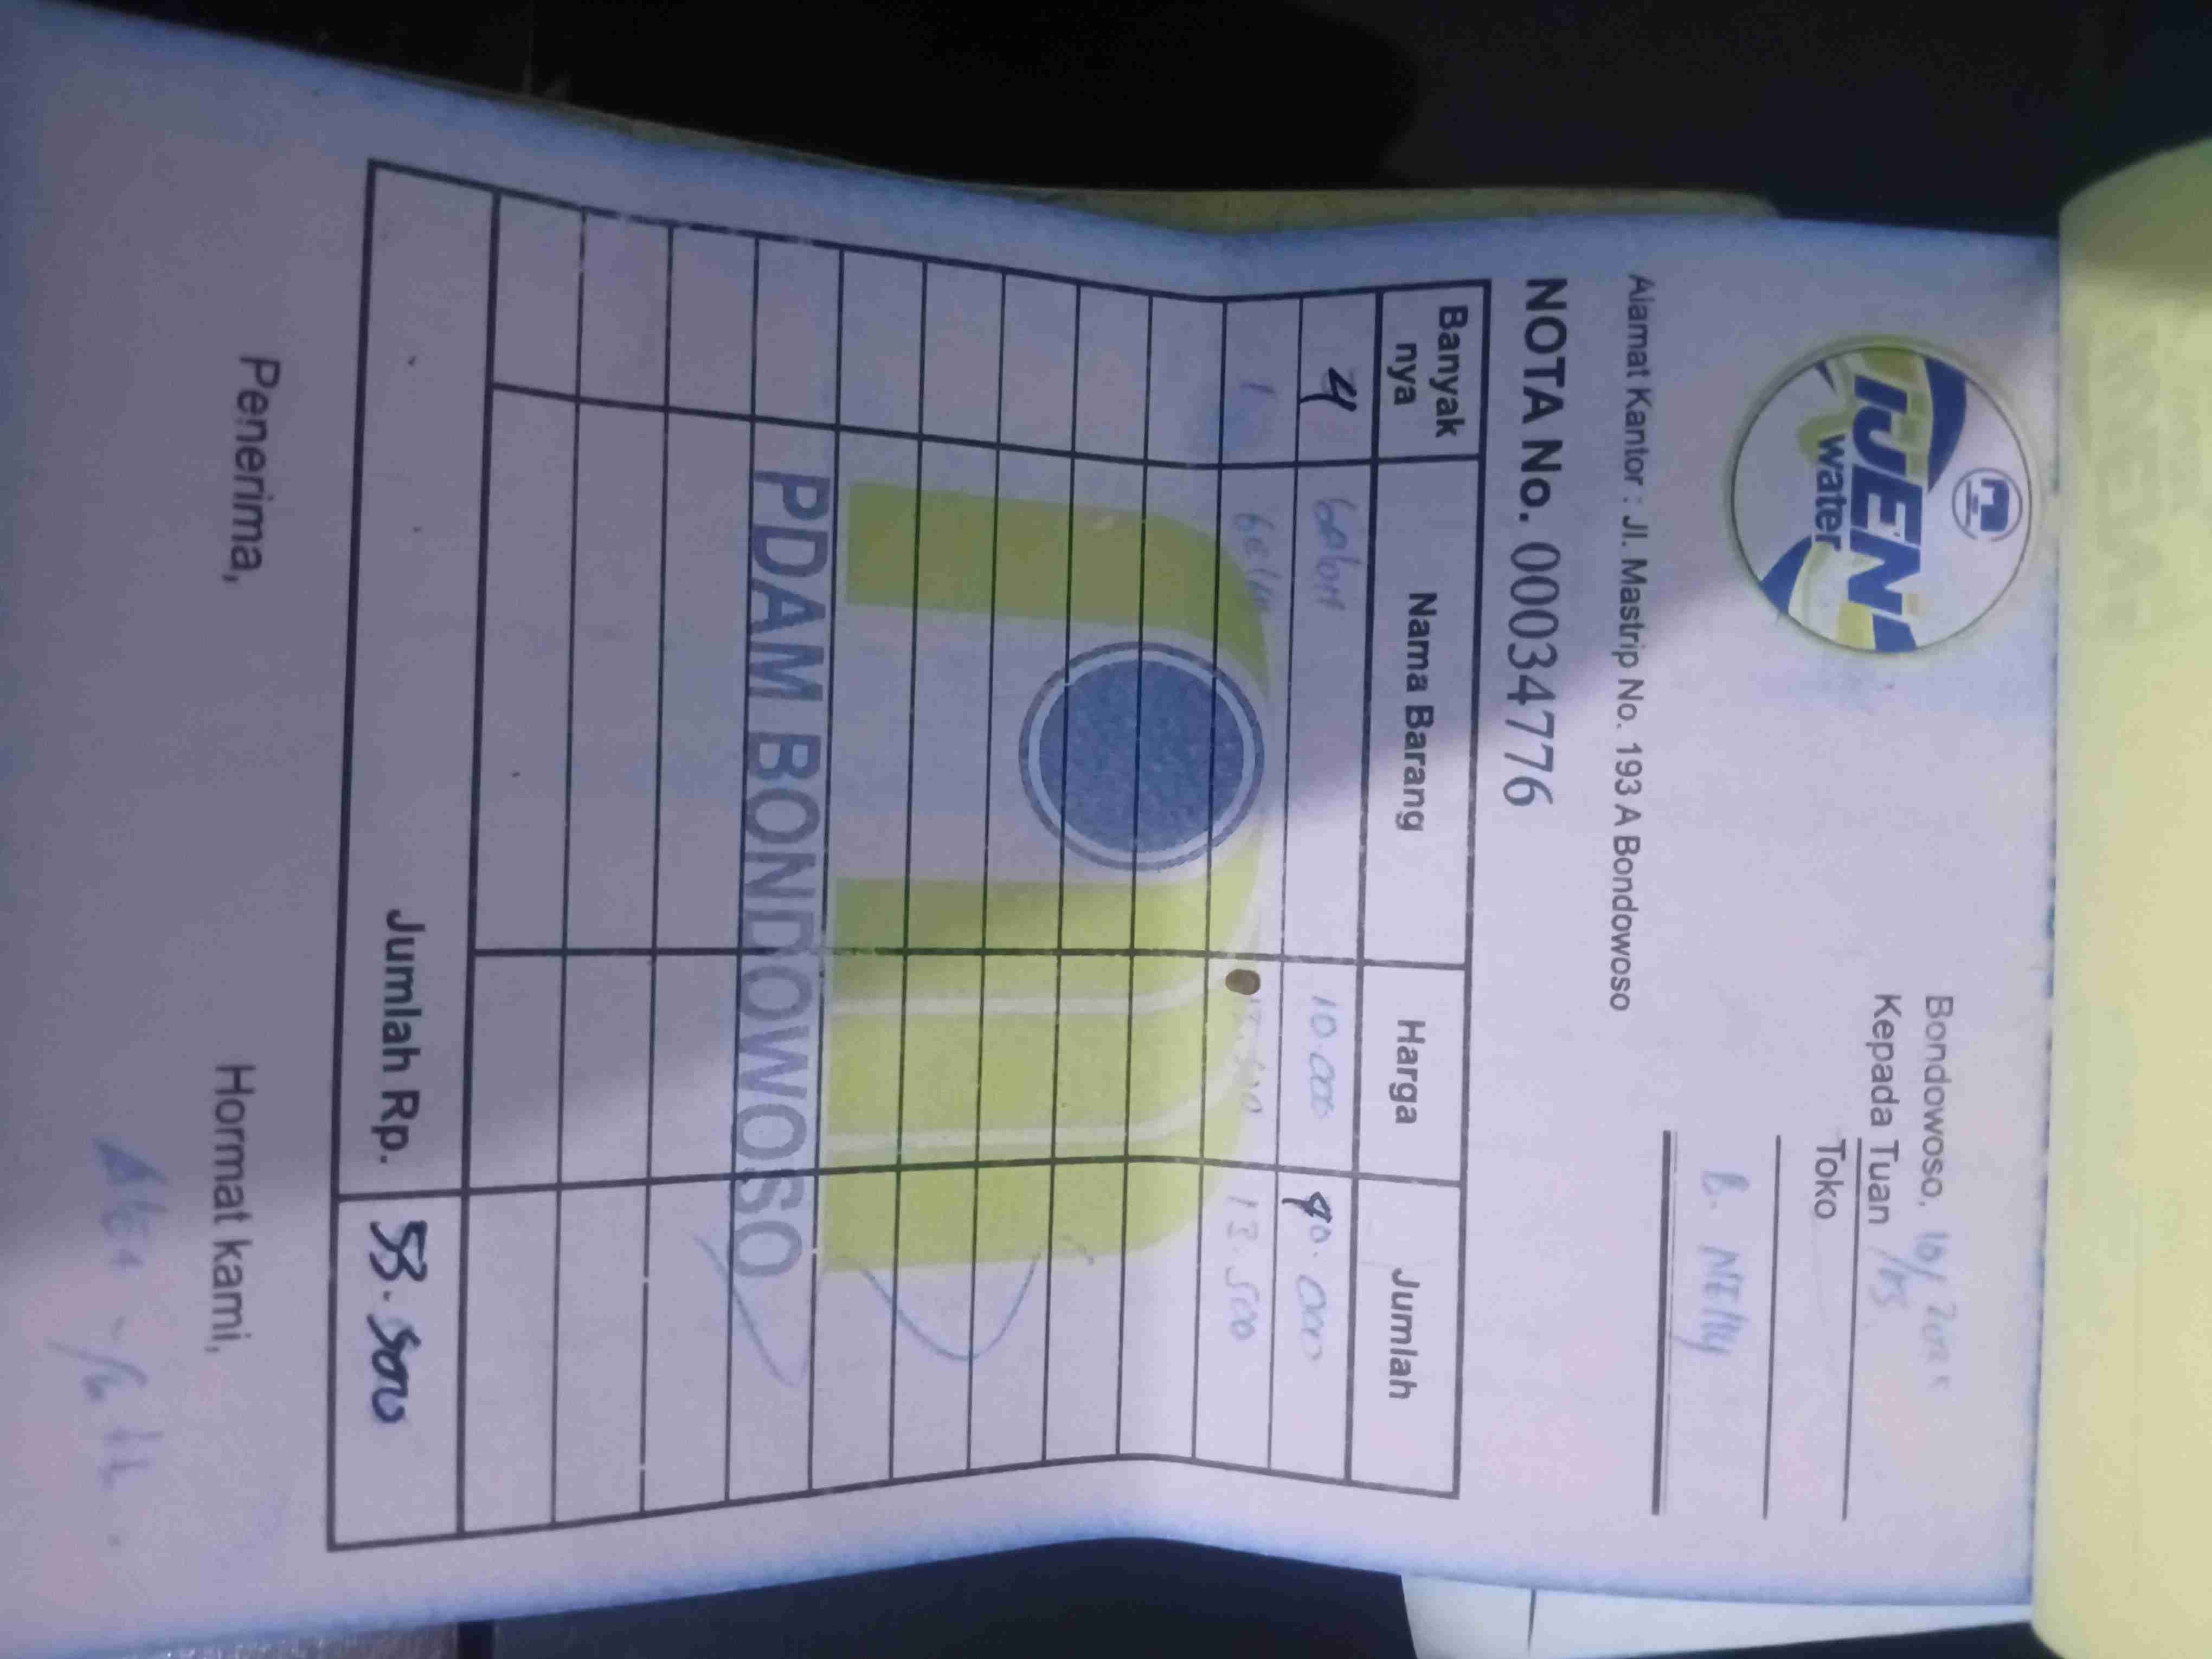 IJEN
water
Bondowoso, 10/
Kepada Tuan
Toko
B. NEllY
Alamat Kantor : Jl. Mastrip No. 193 A Bondowoso
NOTA No. 00034776
Banyak nya Nama Barang Harga Jumlah
4 Galon 10.000 40.000
1 13.500
PDAM BONDOWOSO
Jumlah Rp. 53.500
Penerima, Hormat kami,